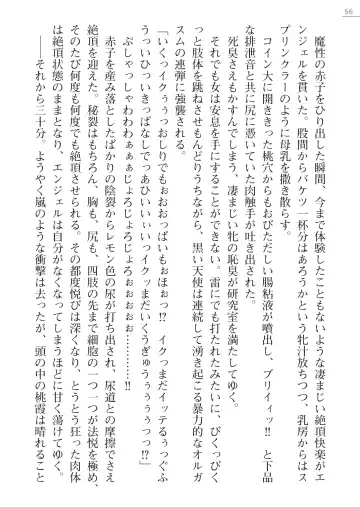 56
魔性の赤子をひり出した瞬間、今まで体験したこともないような凄まじい絶頂快楽がエ
ンジェルを貫いた。股間からバケツ一杯分はあろうかという牝汁放ちつつ、乳房からはス
プリンクラーのように母乳を撒き散らす。
コイン大に開ききった桃穴からもおびただしい腸粘液が噴出し、ブリイィッ!!と下品
な排泄音と共に尻に憑いていた肉触手が吐き出された。
死臭さえもかすんでしまう、凄まじい牝の恥臭が研究室を満たしてゆく。
それでも女は安息を手にすることができない。雷にでも打たれたみたいに、びくっびく
っと肢体を跳ねさせもんどりうちながら、黒い天使は連続して湧き起こる暴力的なオルガ
スムの連弾に強襲される。
「いくっイクぅぅっおしりでもぉおおっぱいもぉほぉっ!?イクっまだイッテるぅっぐふ
うっいひっいきっぱなしでっあひいいぃぃっイクッまだいくうぎゅううぅぅっつ!?」
ぷしゃっしゃわわわぁぁぁじょろじょろじょろぉぉぉぉ………!!
赤子を産み落としたばかりの陰裂からレモン色の尿が打ち出され、尿道との摩擦でさえ
絶頂を迎えてゆく。秘裂はもちろん、胸も、尻も、四肢の先まで細胞の一つ一つが法悦を極め、
そのたび何度も何度でも絶頂させられる。その都度悦びは深くなり、とうとう狂った肉体
は絶頂状態のままとなり、エンジェルは自分がなくなってしまうほどに甘く蕩けてゆく。
――それから三十分。ようやく嵐のような衝撃は去ったが、頭の中の桃霞は晴れること